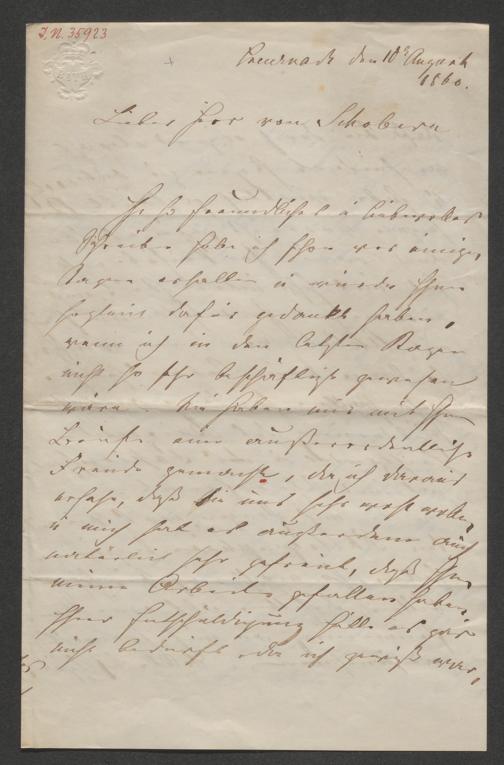 I.N. 35923
den 18t August
1860.
Lieber Herr von Schobern
Ihr so freundliches u liebevolles
Schreiben habe ich schon vor einigen
Tagen erhalten u würde Ihnen
sogleich dafür gedankt haben,
wenn ich in den letzten Tagen
nicht so sehr beschäftigt gewesen
wäre. Sie haben mir mit Ihrem
Briefe eine außerordentliche
Freude gemacht, da ich daraus
ersehe, daß Sie uns sehr wohl wollen,
u mich hat es außerdem auch
natürlich sehr gefreut, daß Ihnen
meine Arbeiten gefallen haben.
Ihrer Entschuldigung hätte es gar
nicht bedurft, da ich gewiß war,